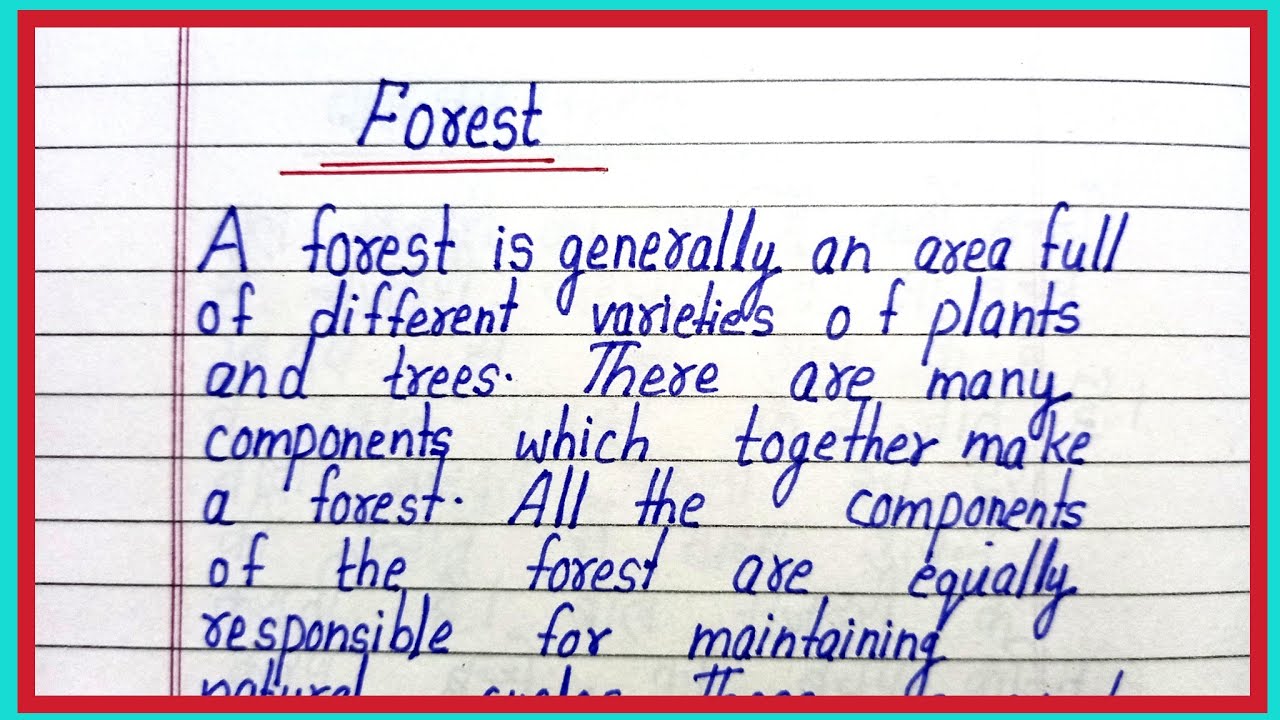 Forest
A forest is generally an area full
of different varieties of plants
and trees. There are many
components which together make
a forest. All the components
of the forest are equally
responsible for maintaining
natural cycles.